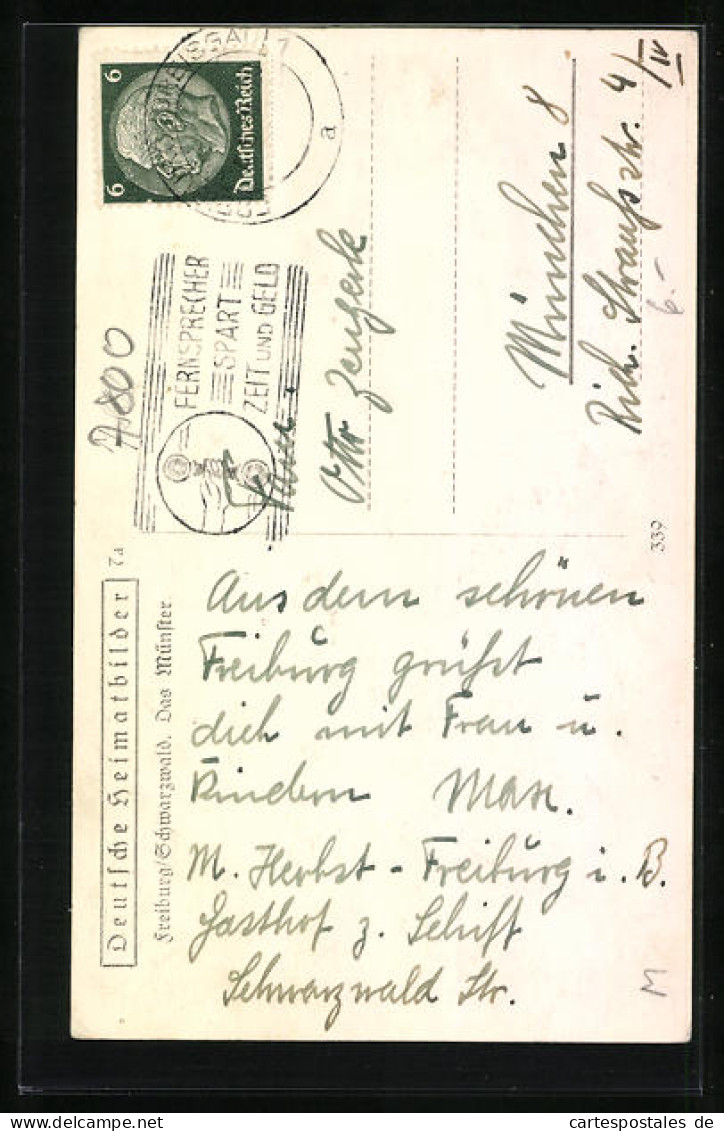 Deutsche Heimatbilder 7a
Freiburg/Schwarzwald. Das Münster
Aus dem schönen
Freiburg grüßt
dich mit Frau u.
Kindern Max.
M. Herbst - Freiburg i. B.
Gasthof z. Schiff
Schwarzwald Str.
339
6
6
Deutsches Reich
a
FERNSPRECHER
SPART
ZEIT UND GELD
7800
Otto
München 8
Rich. Straußstr. 4/IV
6.-
M
cartespostales de